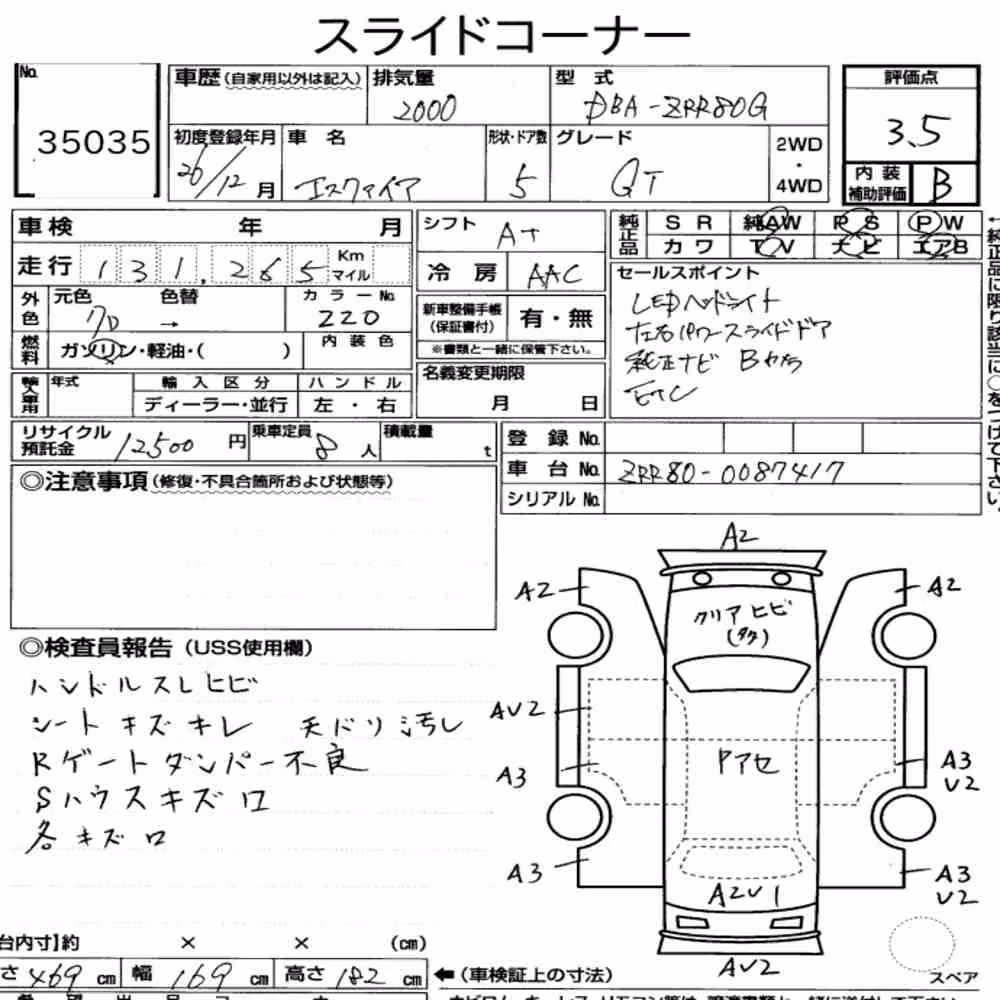 スライドコーナー
No.
35035
車歴(自家用以外は記入)
排気量
2000
型 式
DBA-ZRR80G
評価点
3.5
初度登録年月
26/12月
車 名
エスクァイア
形状・ドア数
5
グレード
Gi
2WD
・
4WD
内 装
補助評価
B
車検 年 月
シフト
A+
純正品
S R
純AW
P S
P W
カ ワ
T V
ナ ビ
エアB
走行
131,265
Km
マイル
冷 房
AAC
セールスポイント
LEDヘッドライト
左右パワースライドドア
純正ナビ Bカメラ
ETC
外色
元色
色替
カラーNo.
クロ → 220
新車整備手帳
(保証書付)
有・無
※書類と一緒に保管下さい。
燃料
ガソリン・軽油・( )
内装色
名義変更期限
月 日
輸入車用
年式
輸入区分
ハンドル
ディーラー・並行
左・右
リサイクル
預託金
12500円
乗車定員
8人
積載量
t
登 録 No.
車 台 No.
ZRR80-0087417
シリアル No.
←純正品に限り該当に○をつけて下さい。
◎注意事項(修復・不具合箇所および状態等)
◎検査員報告(USS使用欄)
ハンドルスレヒビ
シートキズキレ 天ドリ汚レ
Rゲートダンパー不良
Sハウスキズロ
各キズロ
A2
A2
A2
クリアヒビ
(タタ)
AV2
A3
Pアセ
A3
V2
A3
A3
V2
A2V1
AV2
スペア
台内寸]約 × × (cm)
さ 469 cm
幅 169 cm
高さ 182 cm
←(車検証上の寸法)